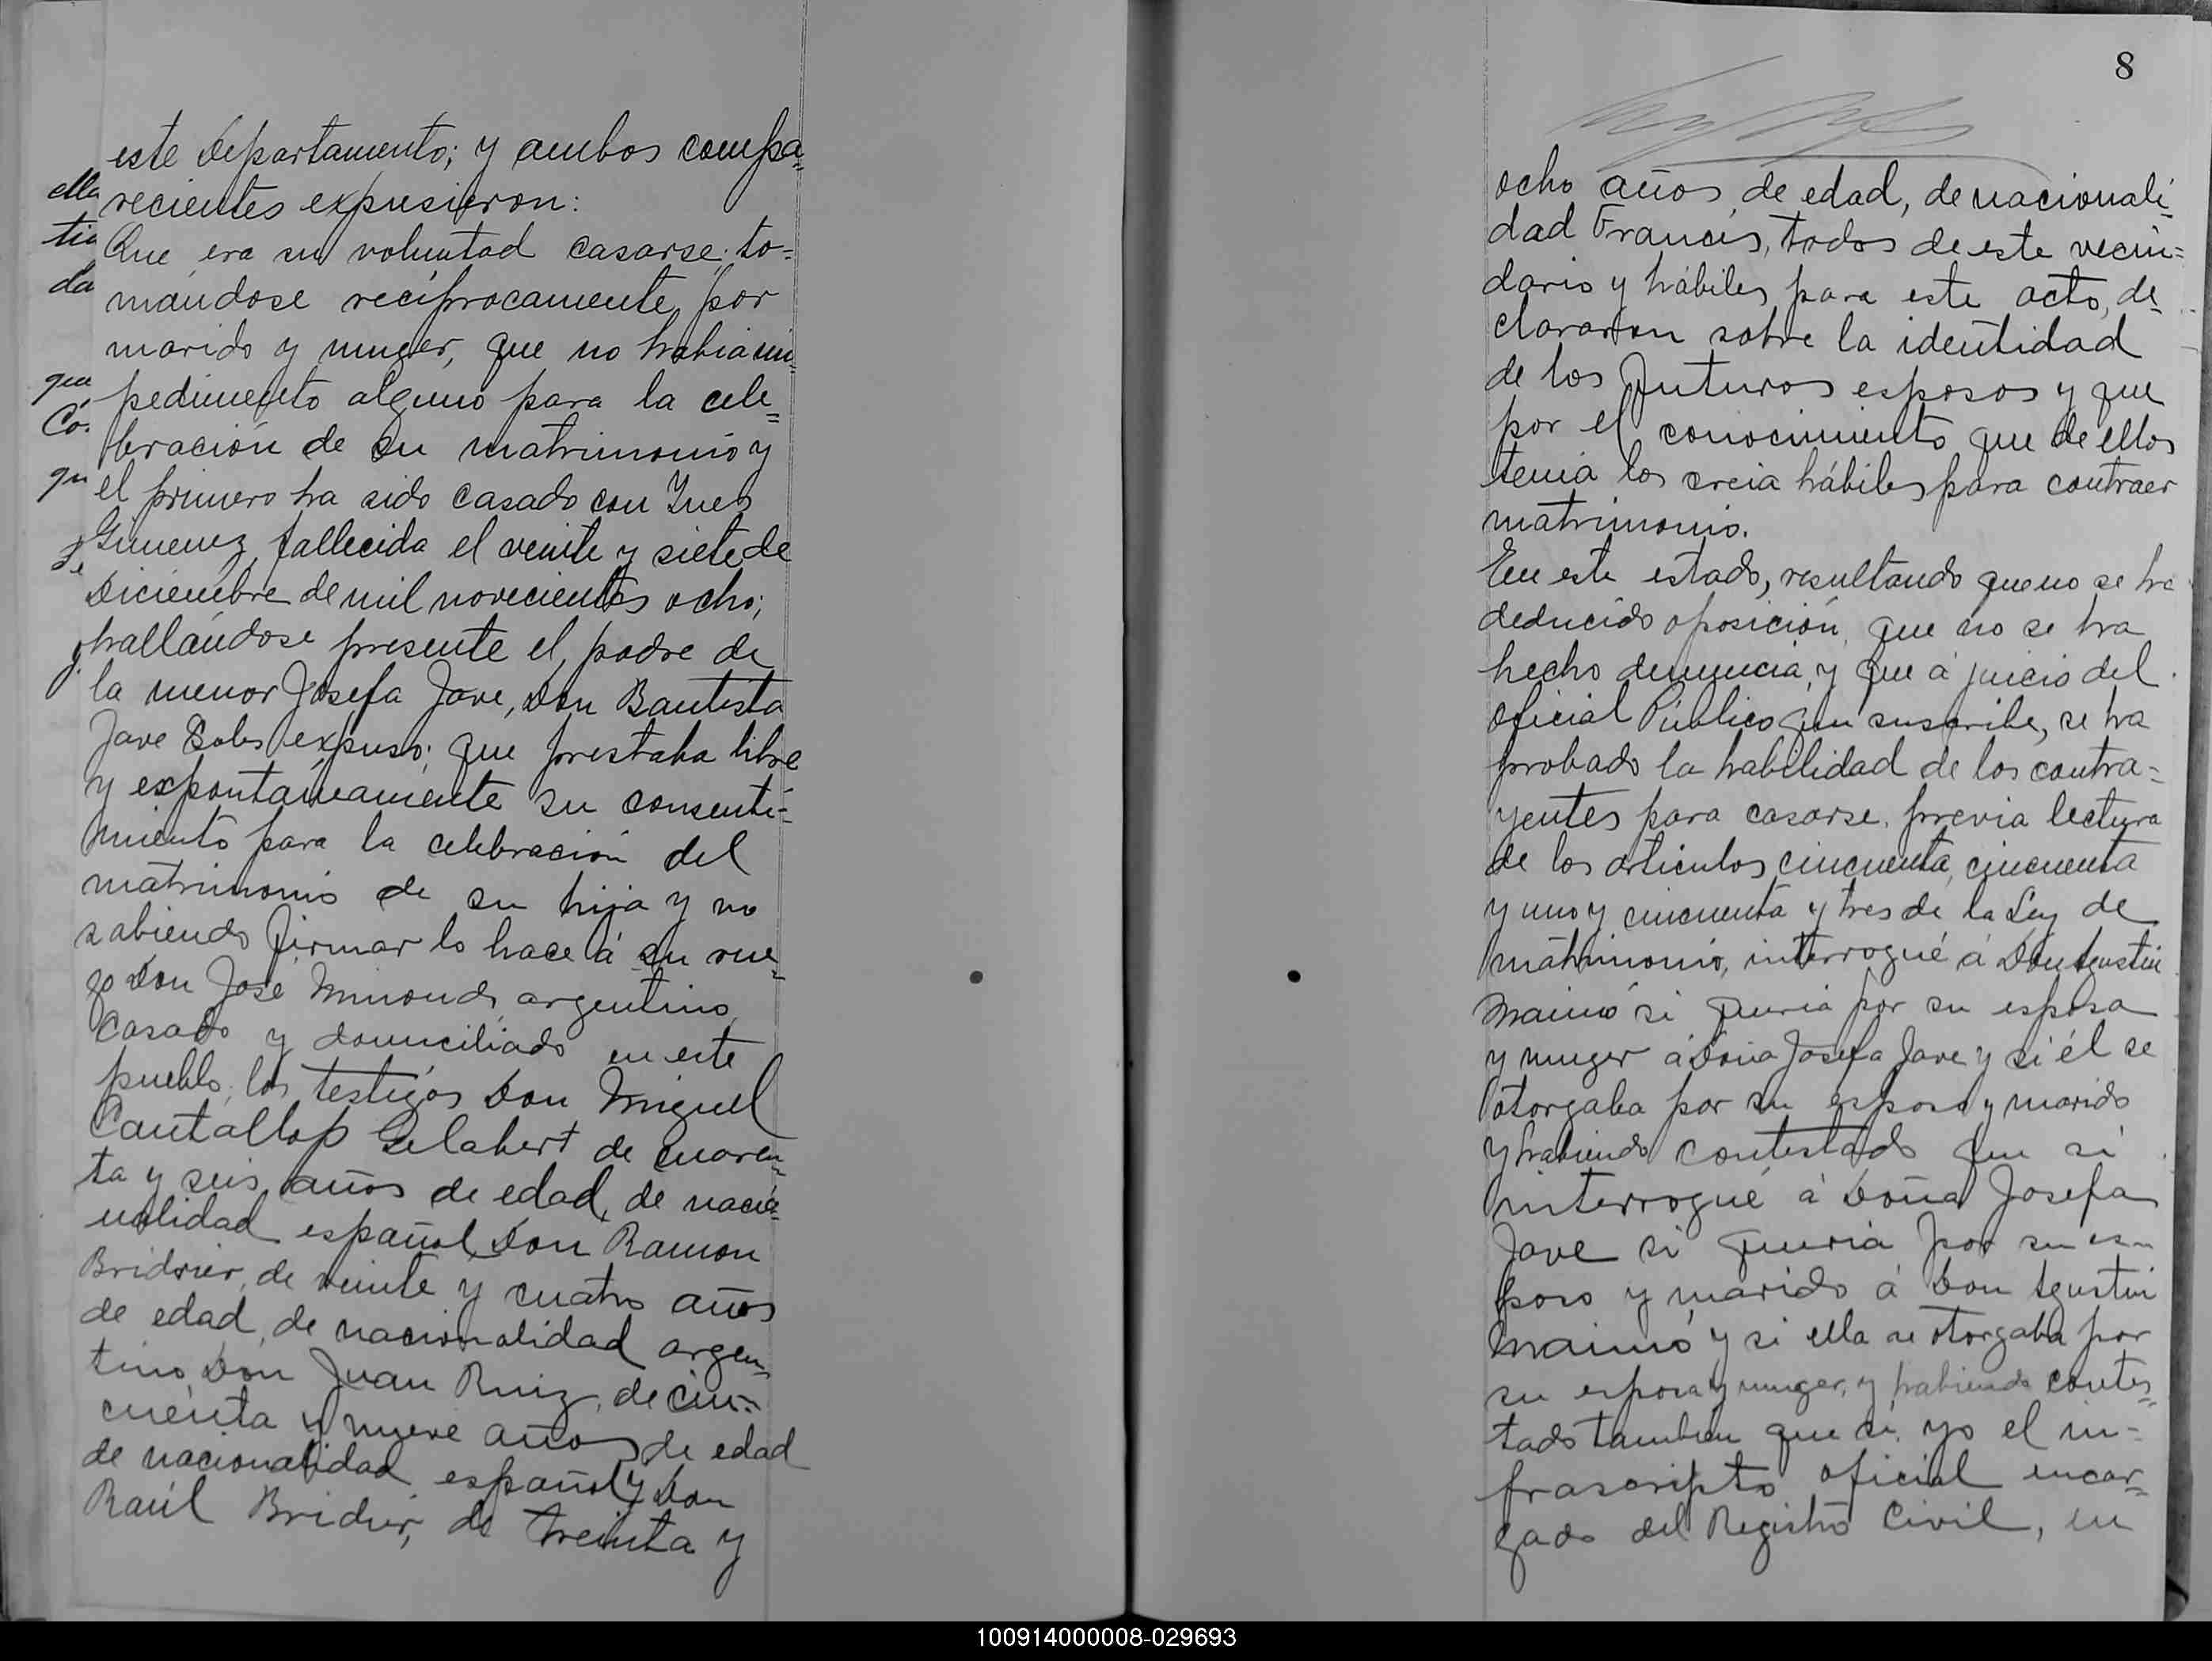 este Departamento; y ambos compa=
recientes expusieron:
Que era su voluntad casarse to=
mandose recíprocamente por
marido y muger, que no habia im=
pedimento alguno para la cele=
bración de su matrimonio y
el primero ha sido casado con Ines
Gimenez, fallecida el veinte y siete de
Diciembre de mil novecientos ocho;
hallándose presente el, padre de
la menor Josefa Jave, Don Bautista
Jave expuso; que prestaba libre
y expontaneamente su consenti=
miento para la celebración del
matrimonio de su hija y no
sabiendo firmar lo hace á su rue=
go Don José argentino,
casado y domiciliado en este
pueblo; los testigos Don Miguel
Cantallop Gelabert de cuaren=
ta y seis años de edad, de nacio=
nalidad español, Don Ramon
Bridrier, de veinte y cuatro años
de edad, de nacionalidad argen=
tino, Don Juan Ruiz, de cin=
cuenta y nueve años de edad
de nacionalidad español y Don
Raúl Bridier, de treinta y
ella
tia
da
que
Có.
qu
8
ocho años de edad, de nacionali=
dad Francés, todos de este vecin=
dario y hábiles para este acto, de=
clararon sobre la identidad
de los futuros esposos y que
por el conocimiento que de ellos
tenia los creia hábiles para contraer
matrimonio.
En este estado, resultando que no se ha
deducido oposición, que no se ha
hecho denuncia, y que á juicio del
oficial Público que suscribe, se ha
probado la habilidad de los contra=
yentes para casarse, previa lectura
de los artículos cincuenta, cincuenta
y uno y cincuenta y tres de la Ley de
matrimonio, interrogué á Don Agustin
Maimó si queria por su esposa
y muger á Doña Josefa Jave y si él se
otorgaba por su esposo y marido
y habiendo contestado que si
interrogué á Doña Josefa
Jave si queria por su es=
poso y marido á Don Agustin
Maimó y si ella se otorgaba por
su esposa y muger, y habiendo contes=
tado tambien que si, yo el in=
frascripto oficial encar=
gado del Registro Civil, en
100914000008-029693